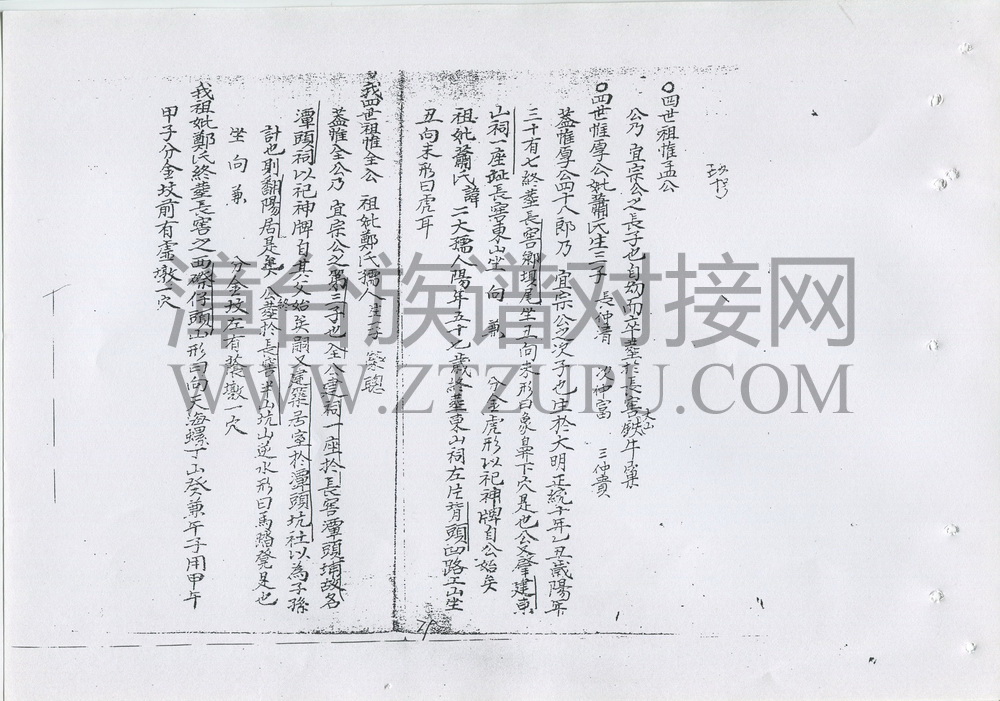 〇四世祖惟孟公
公乃 宜宗公之長子也自幼而卒葬於長窖鉄牛窠
大山
〇四世惟厚公妣蕭氏生三子 長仲清 次仲富 三仲貴
蓋惟厚公四十八郎乃 宜宗公之次子也生於大明正統十年乙丑歲陽年
三十有七終葬長窖鄉埧尾坐丑向未形曰象鼻下穴是也公又肇建東
山祠一座趾長窖東山坐 向 兼 分金虎形以祀神牌自公始矣
祖妣蕭氏諱 二大孺人陽年五十七歲終葬東山祠左片背頭凹路工山坐
丑向未形曰虎耳
我四世祖惟全公 祖妣鄭氏孺人生子 聰
蓋惟全公乃 宜宗公之第三子也全公建祠一座於長窖潭頭埔故名
潭頭祠以祀神牌自其父始矣嗣又建築居室於潭頭坑社以為子孫
計也則翻陽居是矣 公終葬於長窖半山坑山逆水形曰馬蹄凳是也
坐 向 兼 分金坟左有虛墩一穴
我祖妣鄭氏終葬長窖之西磜仔頭山形曰向天海螺丁山癸兼午子用甲午
甲子分金坟前有虛墩一穴
漳台族谱对接网
WWW.ZTZUPU.COM